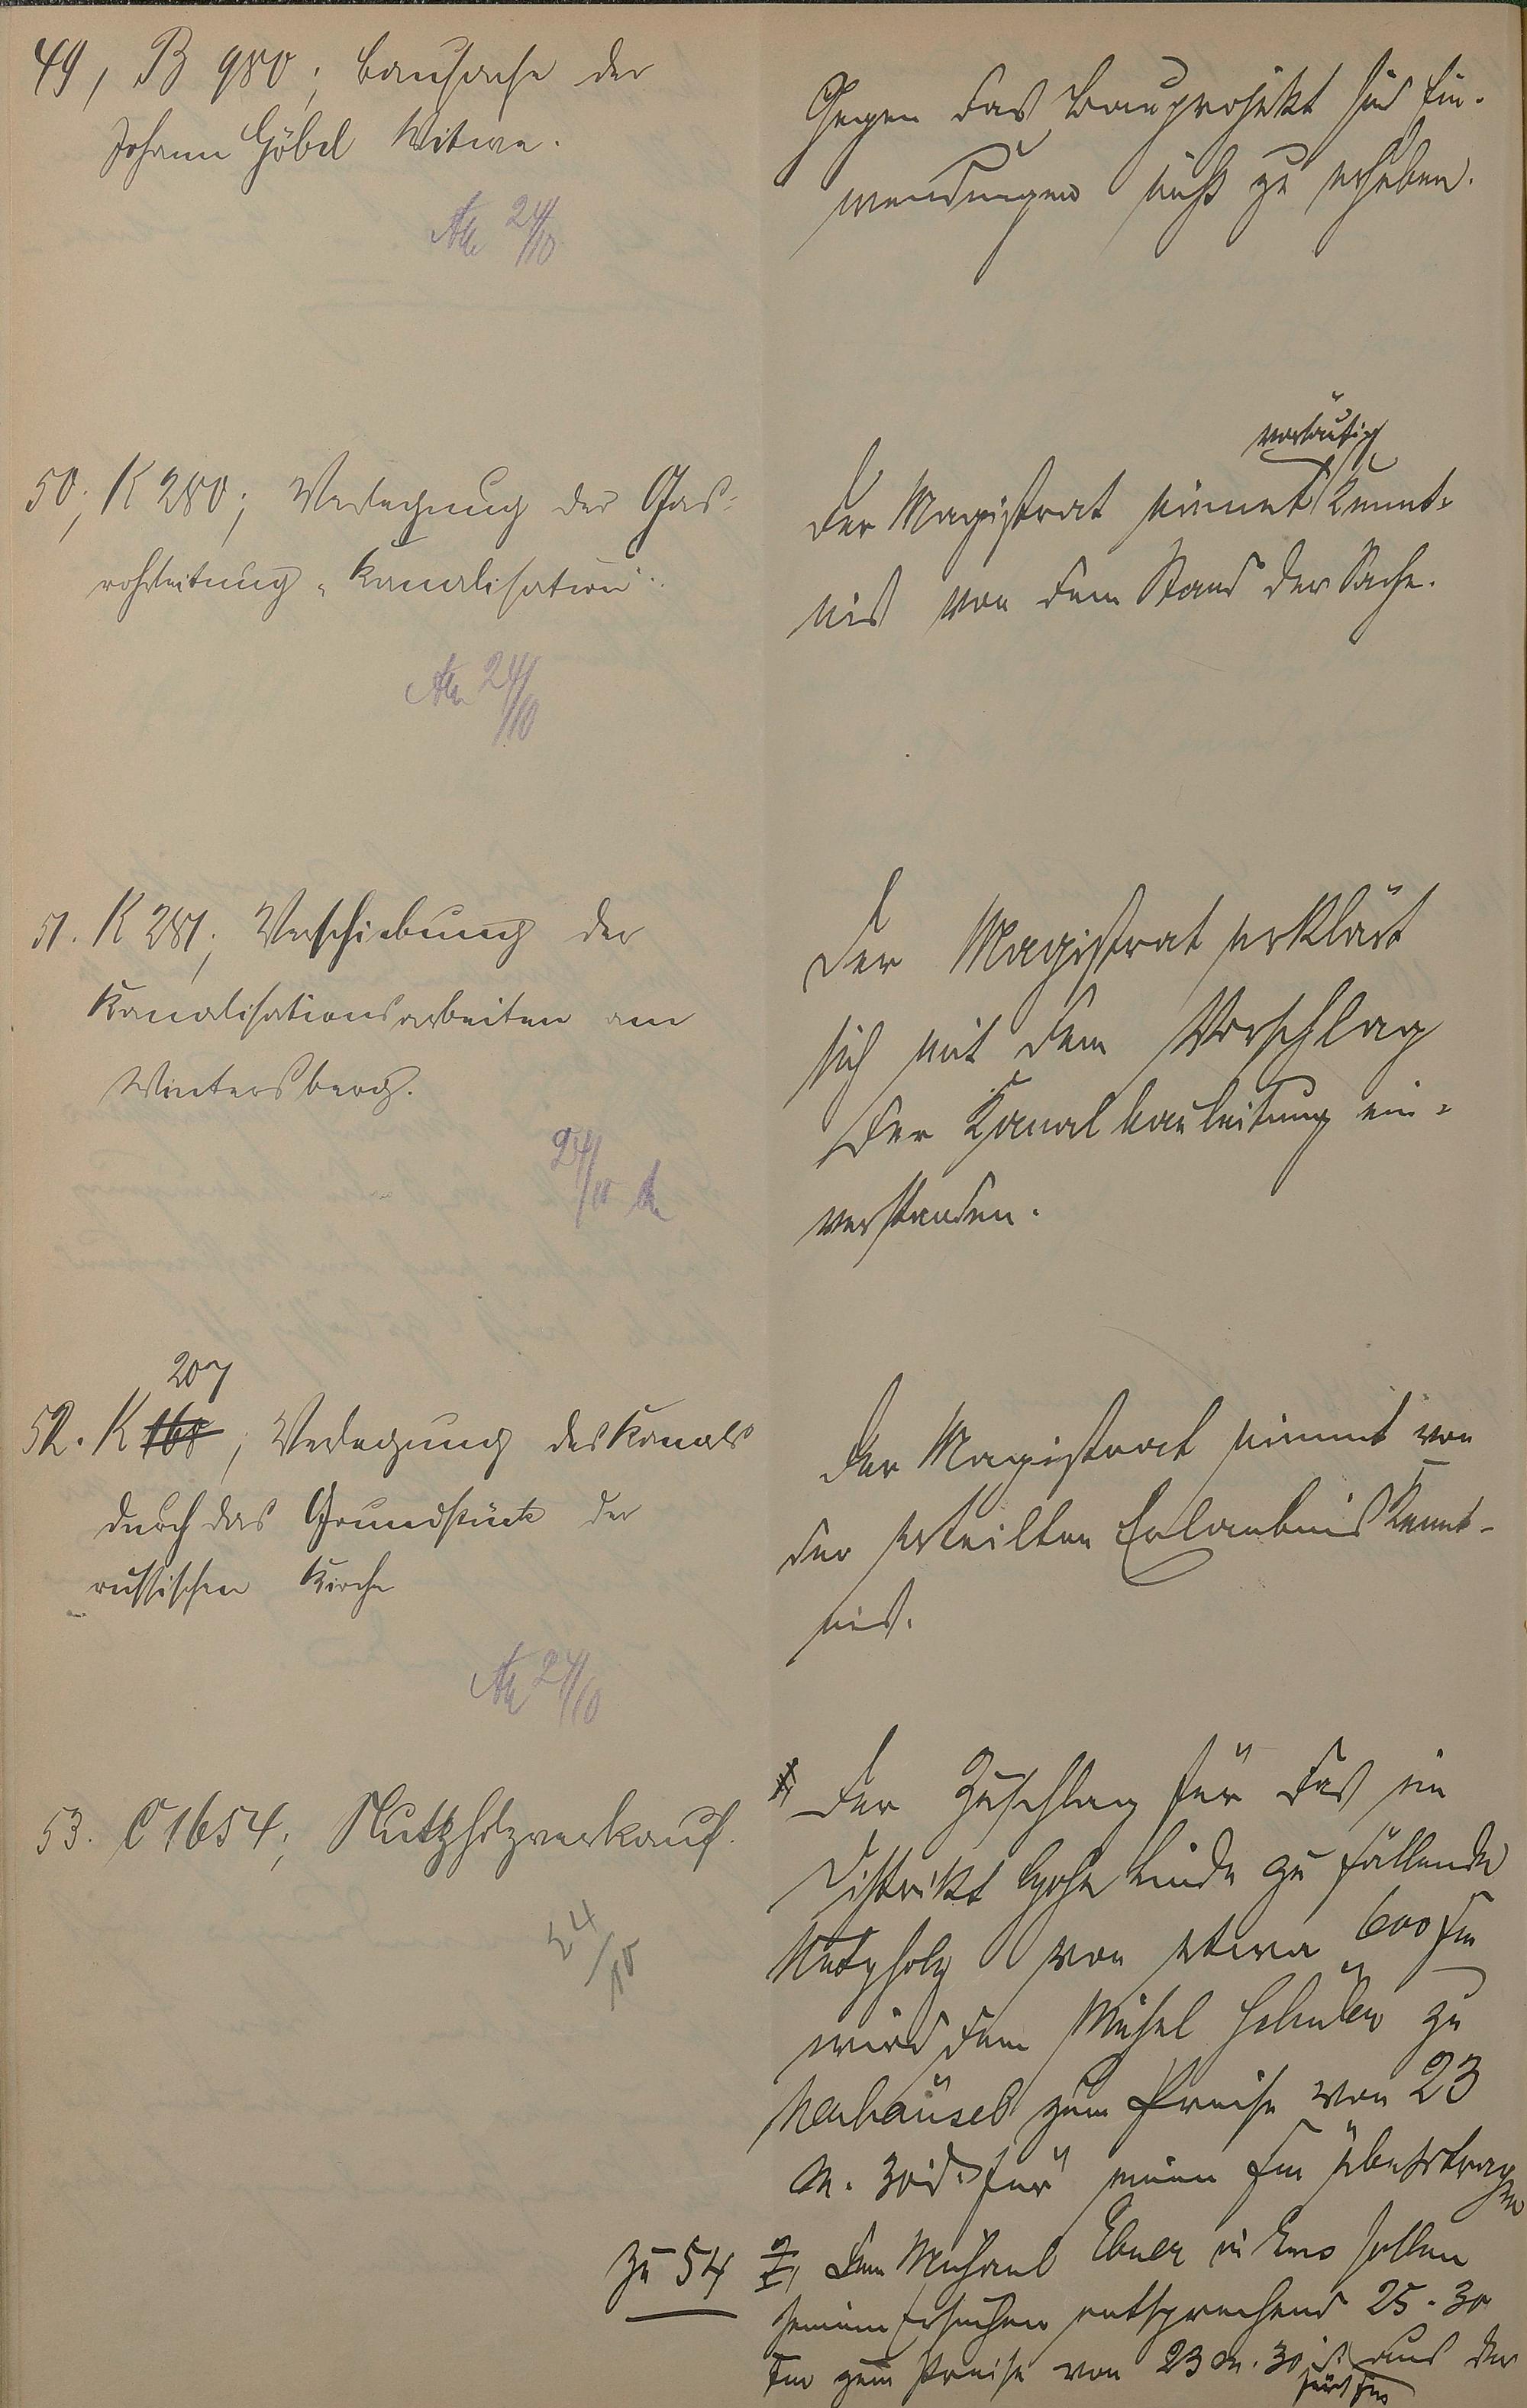 49, B 980; Bausache der
Johann Göbel Witwe.
24/10
Gegen das Bauprojekt sind Ein-
wendungen nicht zu erheben.
50; K 280; Verlegung der Gas-
rohrleitung "Kanalisation".
24/10
vorläufig
Der Magistrat nimmt Kennt-
nis von dem Stand der Sache.
51. K 281; Verschiebung der
Kanalisationsarbeiten am
Wintersberg.
24/10
Der Magistrat erklärt
sich mit dem Vorschlag
der Kanalbauleitung ein-
verstanden.
207
52. K 168; Verlegung des Kanals
durch das Grundstück der
russischen Kirche
24/10
Der Magistrat nimmt von
der erteilten Erlaubnis Kennt-
nis.
53. C 1654; Nutzholzverkauf.
24/10
Der Zuschlag für das im
Distrikt hohe Linde zu fällende
Nutzholz von etwa 600 fm
wird dem zu
Neuhäusel zum Preise von 23
M. 30 d. für einen fm übertragen
zu 54 Dem Michael Ebner in Ems sollen
seinem Ersuchen entsprechend 25-30
fm zum Preise von 23 M. 30 d. aus der
für 1 fm